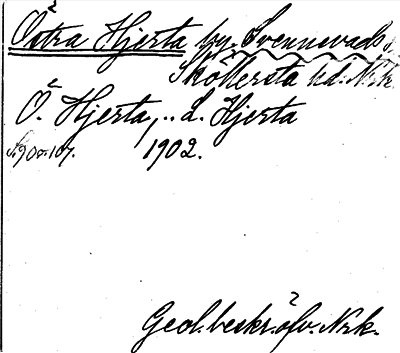 Östra Hjerta by. Svennevads s.
Sköllersta hd. Nrk.
Ö. Hjerta, .. L. Hjerta
s. 900. 107. 1902.
Geol. beskr. öfv. Nrk.